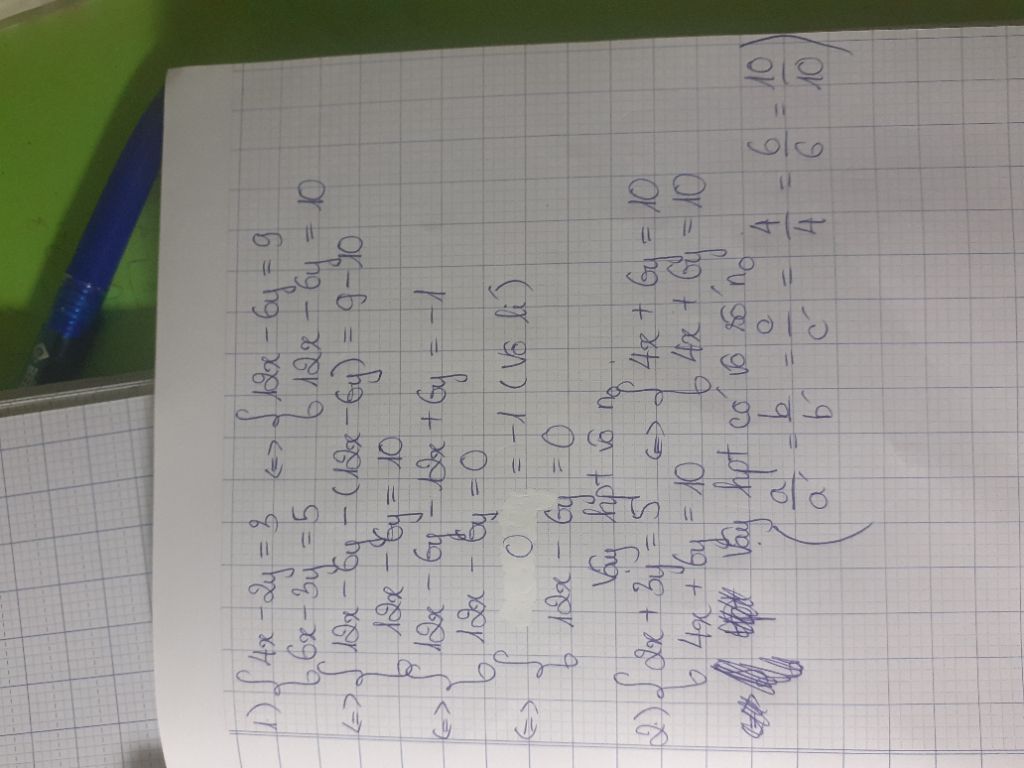 1) { 4x - 2y = 3 <=> { 12x - 6y = 9
6x - 3y = 5 12x - 6y = 10
<=> { 12x - 6y - (12x - 6y) = 9 - 10
12x - 6y = 10
<=> { 12x - 6y - 12x + 6y = -1
12x - 6y = 0
<=> { 0 = -1 (vô lí)
12x - 6y = 0
Vậy hpt vô no
2) { 2x + 3y = 5 <=> { 4x + 6y = 10
4x + 6y = 10 4x + 6y = 10
Vậy hpt có vô số no
( a/a' = b/b' = c/c' = 4/4 = 6/6 = 10/10 )